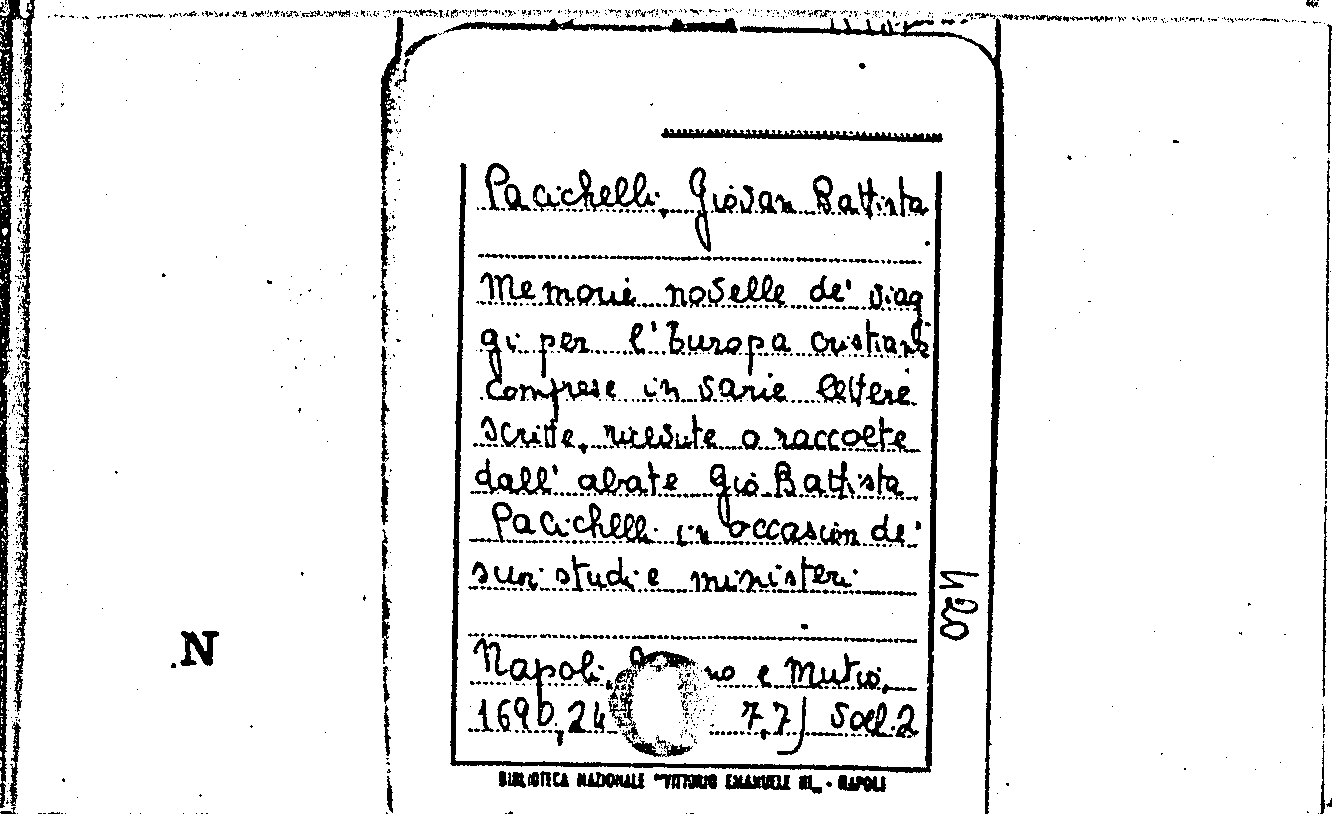 Pacichelli, Giovan Battista
Memorie novelle de' viag
gi per l'Europa cristiana
comprese in varie lettere
scritte, ricevute o raccolte
dall' abate Gio Battista
Pacichelli in occasion de'
suoi studi e ministeri
Napoli, e Mutio,
1690, 24 7,7) Vol. 2
BIBLIOTECA NAZIONALE "VITTORIO EMANUELE III„ - NAPOLI
420
N